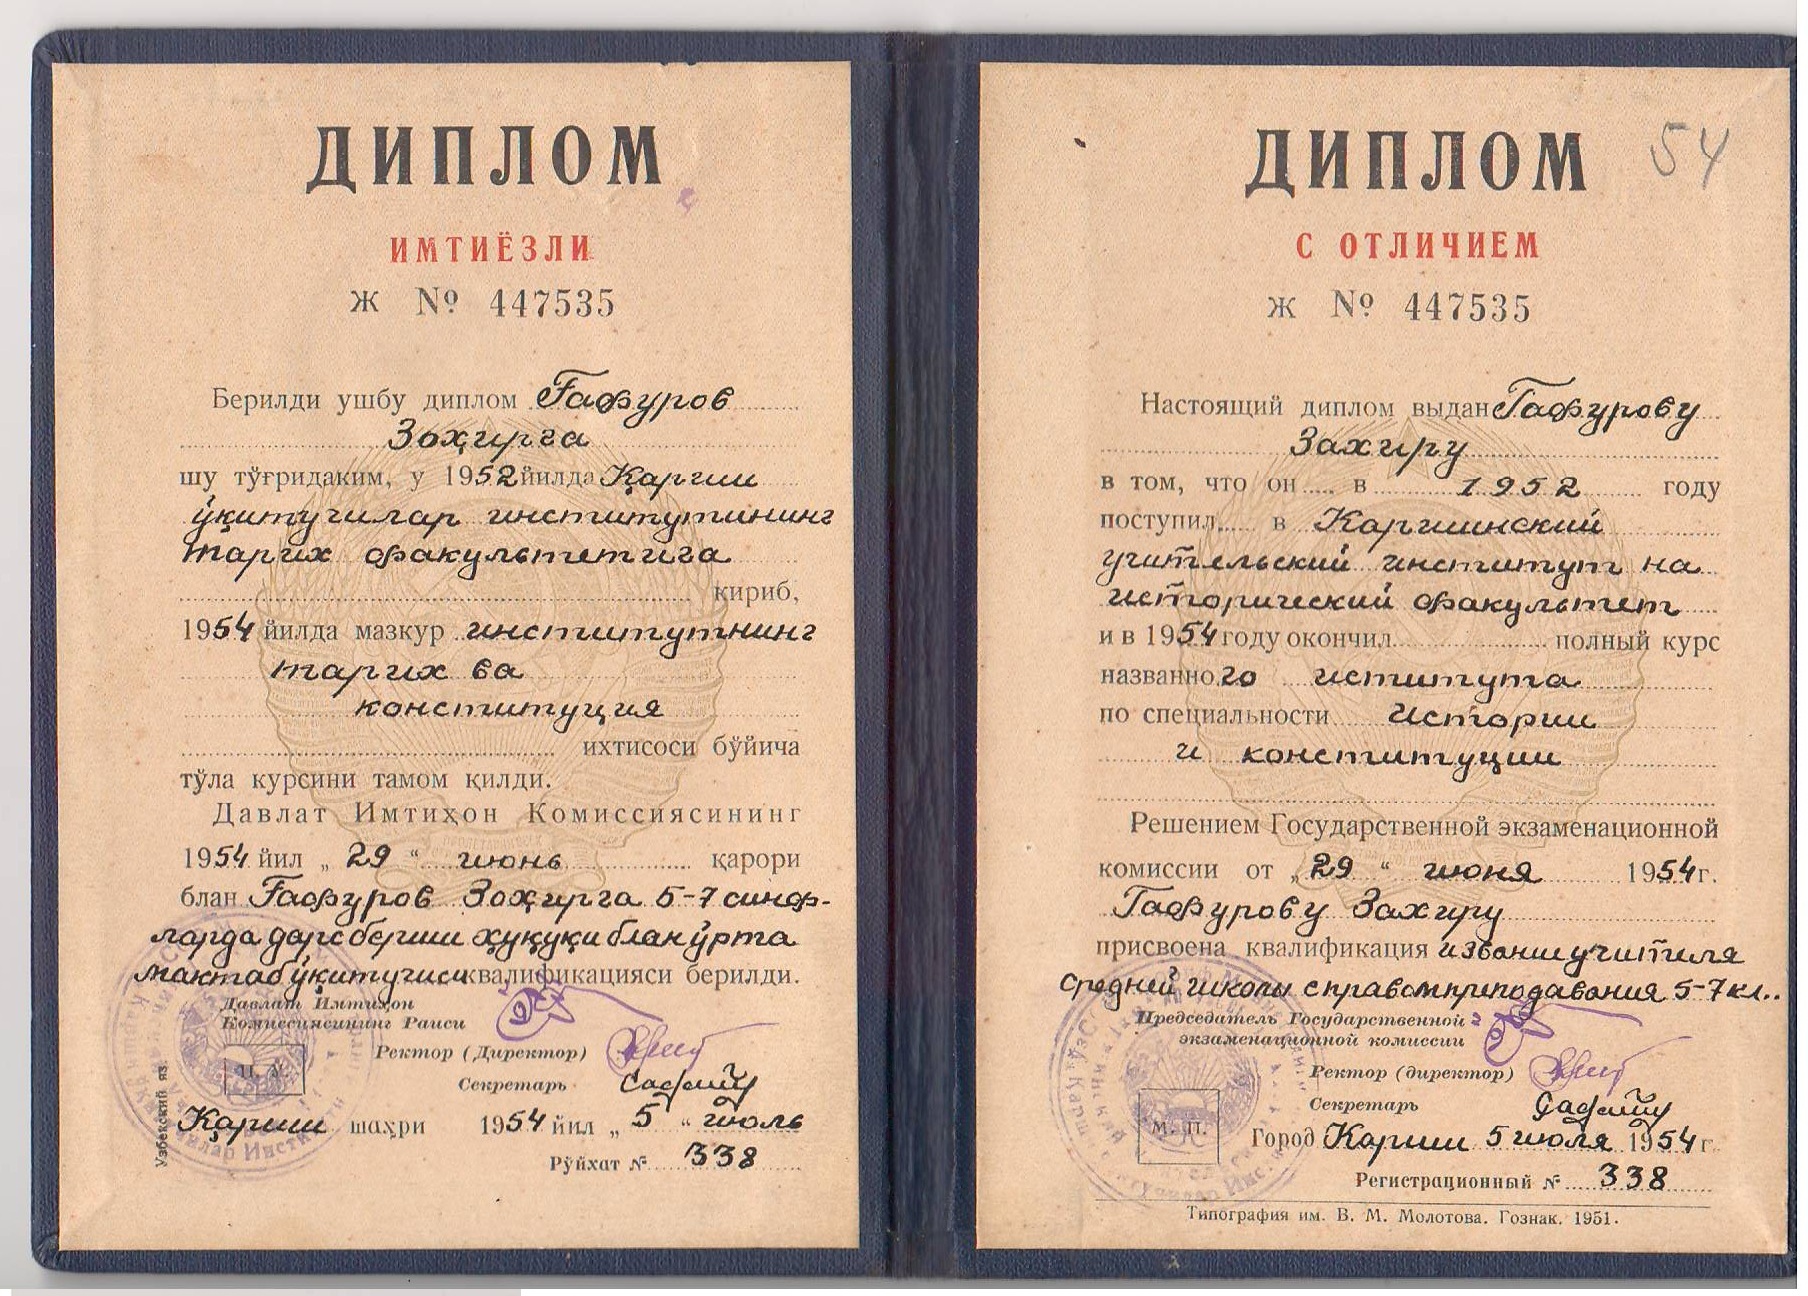 ДИПЛОМ
ИМТИЁЗЛИ
Ж № 447535
Берилди ушбу диплом Ғафуров
Зоҳирга
шу тўғридаким, у 1952 йилда Қарши
ўқитучилар институтининг
тарих факультетига
кириб,
1954 йилда мазкур институтнинг
тарих ва
конституция
ихтисоси бўйича
тўла курсини тамом қилди.
Давлат Имтиҳон Комиссиясининг
1954 йил „29“ июнь қарори
блан Ғафуров Зоҳирга 5-7 синф-
ларда дарс бериш ҳуқуқи блан ўрта
мактаб ўқитучиси квалификацияси берилди.
Давлат Имтиҳон
Комиссиясининг Раиси
Ректор (Директор)
Секретарь
Қарши шаҳри 1954 йил „5“ июль
Рўйхат № 338
Узбекский яз.
ДИПЛОМ
54
С ОТЛИЧИЕМ
Ж № 447535
Настоящий диплом выдан Гафурову
Захиру
в том, что он в 1952 году
поступил в Каршинский
учительский институт на
исторический факультет
и в 1954 году окончил полный курс
названного иститута
по специальности Истории
и конституции
Решением Государственной экзаменационной
комиссии от „29“ июня 1954 г.
Гафурову Захиру
присвоена квалификация и звание учителя
средней школы с правом преподавания 5-7 кл..
Председатель Государственной
экзаменационной комиссии
Ректор (директор)
Секретарь
М. П.
Город Карши 5 июля 1954 г.
Регистрационный № 338
Типография им. В. М. Молотова. Гознак. 1951.